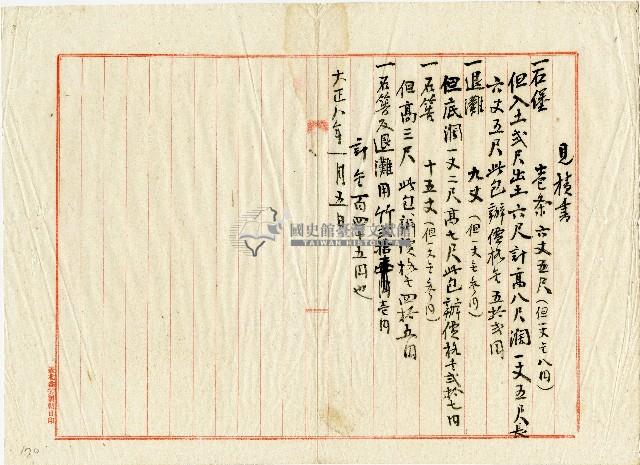 見積書
一石堡 壱条六丈五尺(但一丈金八円)
但入土弍尺出土六尺計高八尺濶一丈五尺長
六丈五尺此包辦價格金五拾弍円
一退灘 九丈(但一丈金參円)
但底濶一丈二尺高七尺此包辦價格金弍拾七円
一石笱 十五丈(但一丈金參円)
但高三尺此包辦價格金四拾五円
一石笱及退灘用竹弍拾壱円
計金百四十五円也
大正八年一月五日
國史館臺灣文獻館
TAIWAN HISTORICA
130